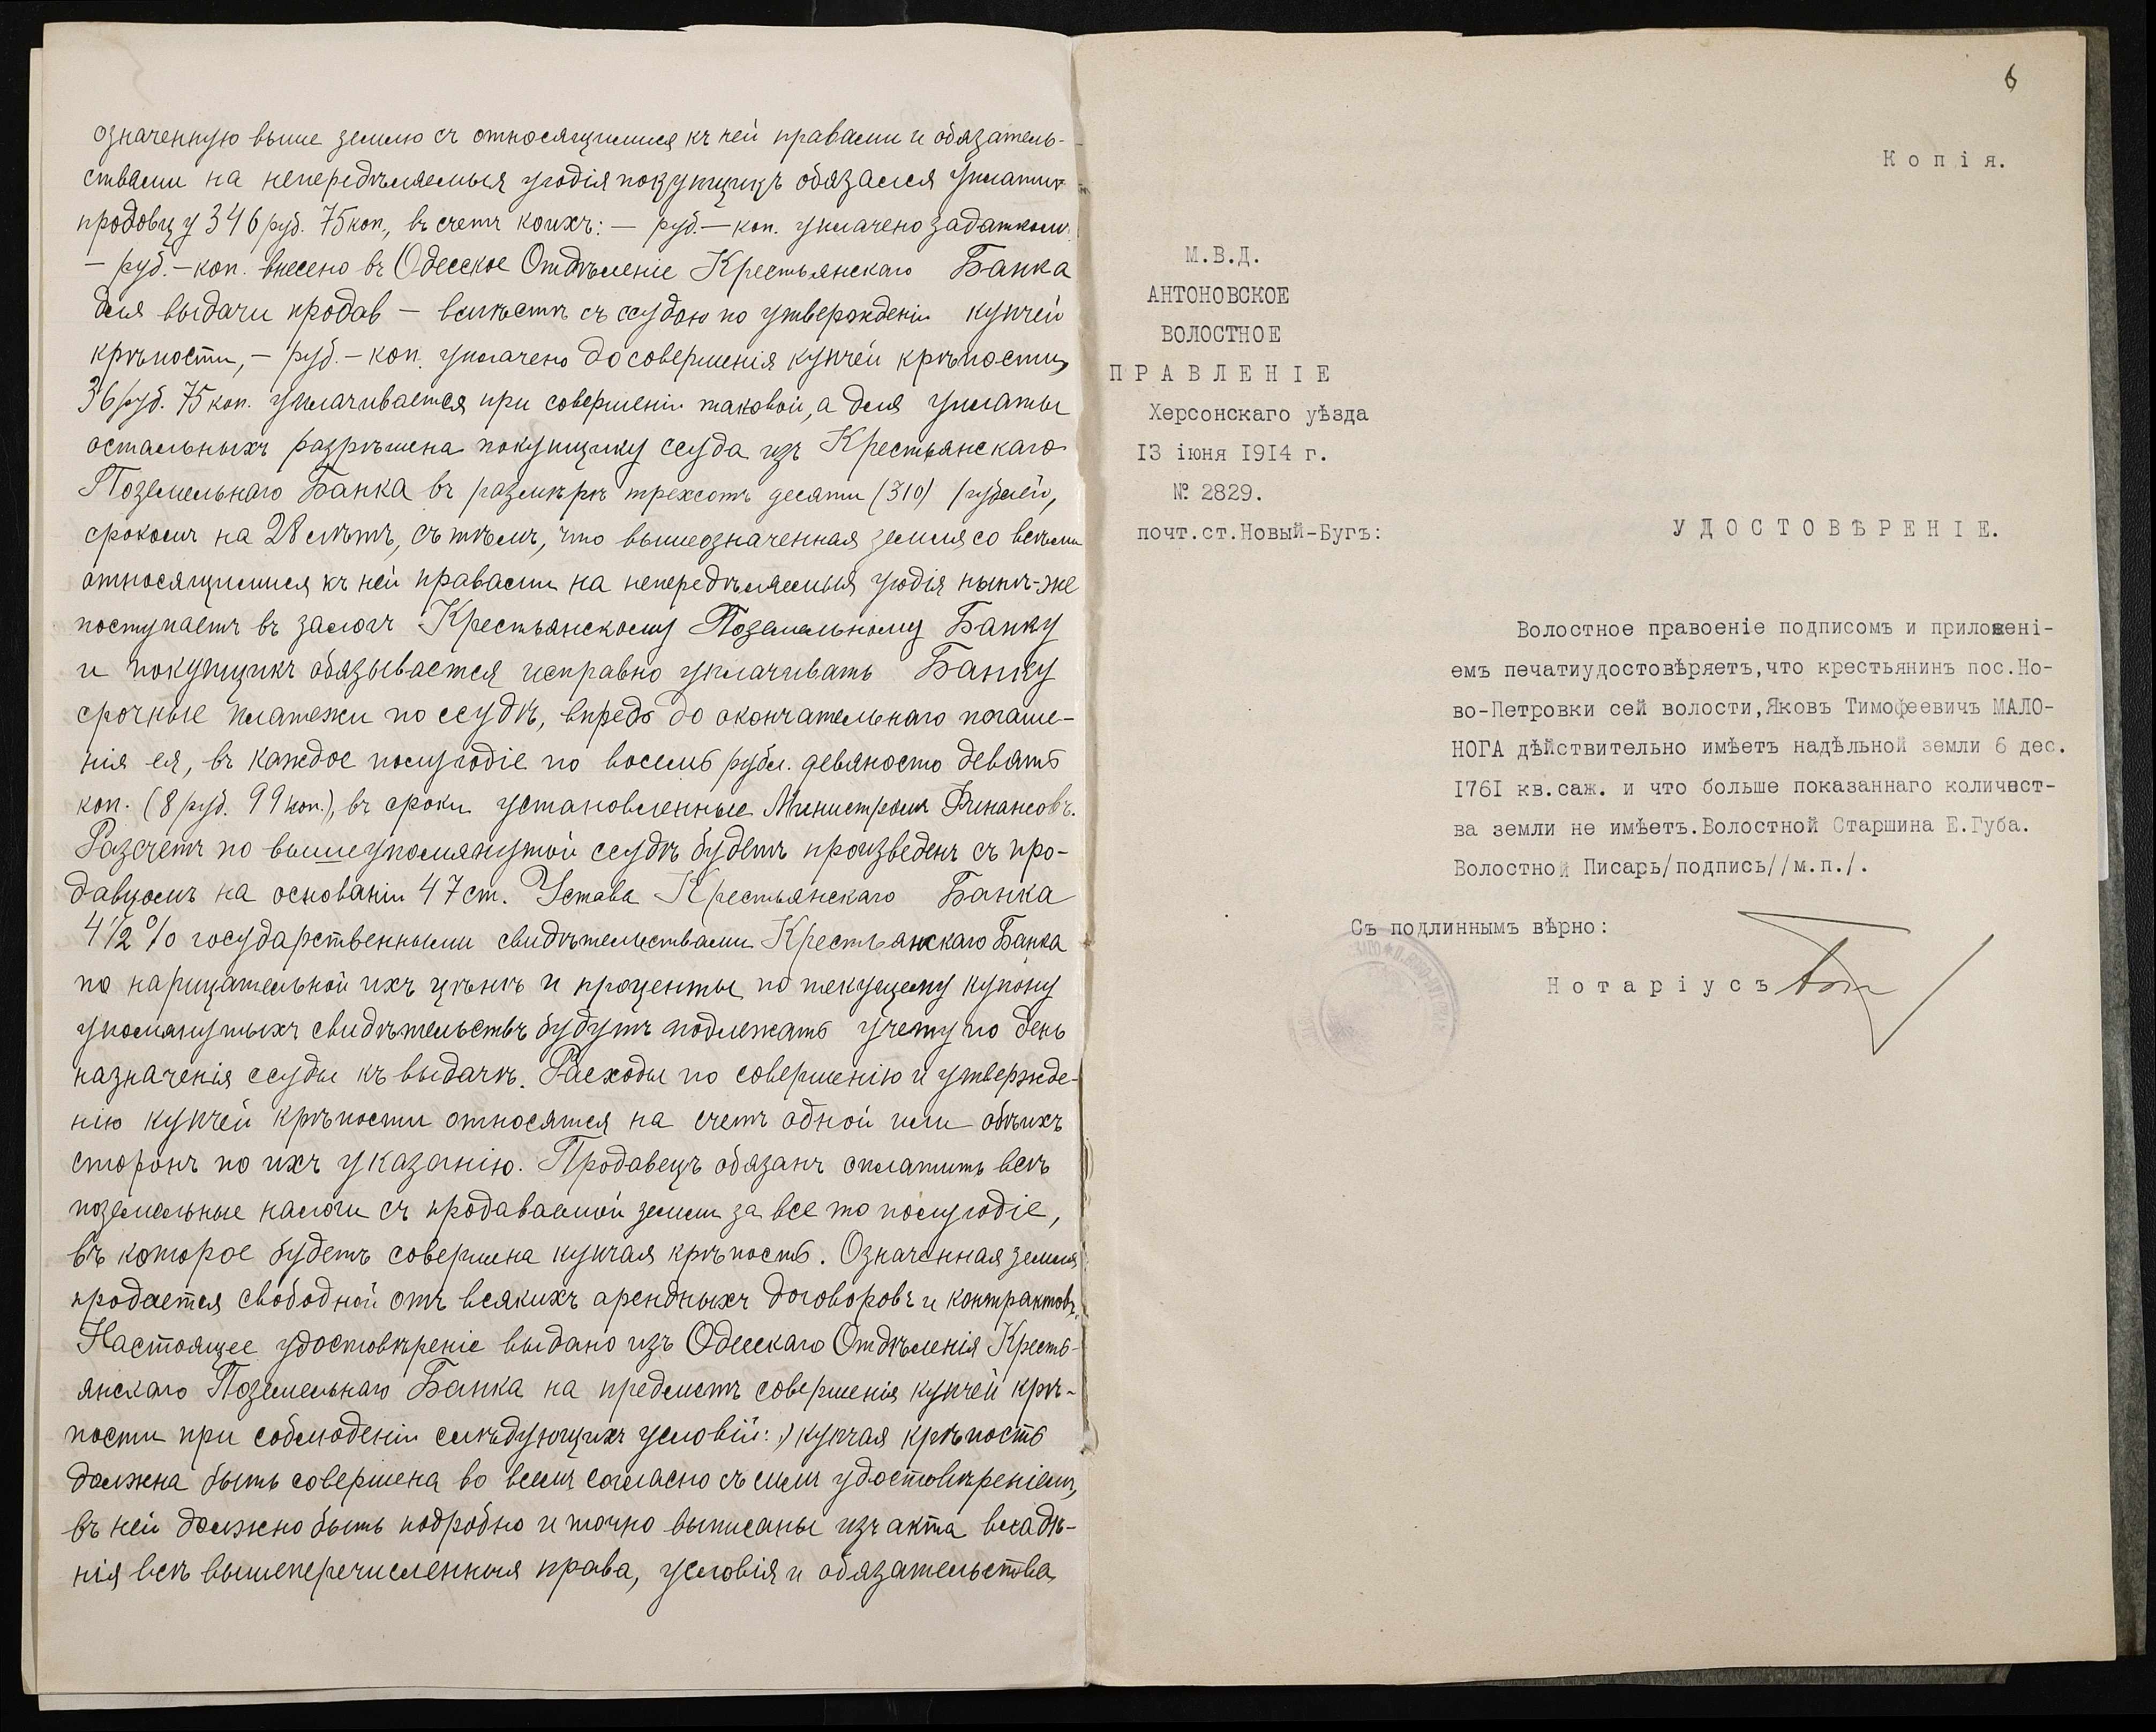 означенную выше землю съ относящимися къ ней правами и обязатель-
ствами на непередѣляемыя угодія покупщикъ обязался уплатить
продовцу 346 руб. 75 коп., въ счетъ коихъ: — руб. — коп. уплачено задаткомъ
— руб. — коп. внесено въ Одесское Отдѣленіе Крестьянскаго Банка
для выдачи продав — вмѣстѣ съ ссудою по утвержденіи купчей
крѣпости, — руб. — коп. уплачено до совершенія купчей крѣпости,
36 руб. 75 коп. уплачивается при совершеніи таковой, а для уплаты
остальныхъ разрѣшена покупщику ссуда изъ Крестьянскаго
Поземельнаго Банка въ размѣрѣ трехсотъ десяти (310) рублей,
срокомъ на 28 лѣтъ, съ тѣмъ, что вышеозначенная земля со всѣми
относящимися къ ней правами на непередѣляемыя угодія нынѣ-же
поступаетъ въ залогъ Крестьянскому Поземельному Банку
и покупщикъ обязывается исправно уплачивать Банку
срочные платежи по ссудѣ, впредь до окончательнаго погаше-
нія ея, въ каждое полугодіе по восемь рубл. девяносто девять
коп. (8 руб. 99 коп.), въ сроки установленные Министромъ Финансовъ.
Разсчетъ по вышеупомянутой ссудѣ будетъ произведенъ съ про-
давцомъ на основаніи 47 ст. Устава Крестьянскаго Банка
4 1/2 % государственными свидѣтельствами Крестьянскаго Банка
по нарицательной ихъ цѣнѣ и проценты по текущему купону
упомянутыхъ свидѣтельствъ будутъ подлежать учету по день
назначенія ссуды къ выдачѣ. Расходы по совершенію и утвержде-
нію купчей крѣпости относятся на счетъ одной или обѣихъ
сторонъ по ихъ указанію. Продавецъ обязанъ оплатить всѣ
поземельные налоги съ продаваемой земли за все то полугодіе,
въ которое будетъ совершена купчая крѣпость. Означенная земля
продается свободной отъ всякихъ арендныхъ договоровъ и контрактовъ.
Настоящее удостовѣреніе выдано изъ Одесскаго Отдѣленія Кресть-
янскаго Поземельнаго Банка на предметъ совершенія купчей крѣ-
пости при соблюденіи слѣдующихъ условій: 1) купчая крѣпость
должна быть совершена во всемъ согласно съ симъ удостовѣреніемъ,
въ ней должно быть подробно и точно выписаны изъ акта владѣ-
нія всѣ вышеперечисленныя права, условія и обязательства,
6
Копія.
М.В.Д.
АНТОНОВСКОЕ
ВОЛОСТНОЕ
ПРАВЛЕНІЕ
Херсонскаго уѣзда
13 іюня 1914 г.
№ 2829.
почт.ст.Новый-Бугъ:
УДОСТОВѢРЕНІЕ.
Волостное правоеніе подписомъ и приложені-
емъ печатиудостовѣряетъ,что крестьянинъ пос.Но-
во-Петровки сей волости,Яковъ Тимофеевичъ МАЛО-
НОГА дѣйствительно имѣетъ надѣльной земли 6 дес.
1761 кв.саж. и что больше показаннаго количест-
ва земли не имѣетъ.Волостной Старшина Е.Губа.
Волостной Писарь/подпись//м.п./.
Съ подлиннымъ вѣрно:
Нотаріусъ